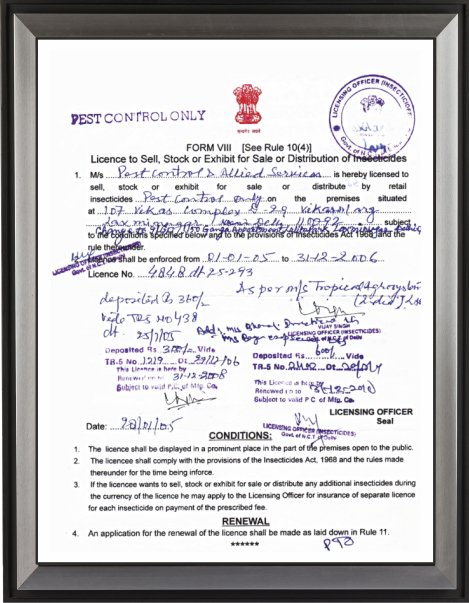 PEST CONTROL ONLY
LICENSING OFFICER (INSECTICIDES)
सत्यमेव जयते
FORM VIII [See Rule 10(4)]
Licence to Sell, Stock or Exhibit for Sale or Distribution of Insecticides
1. M/s Pest Control & Allied Services is hereby licensed to
sell, stock or exhibit for sale or distribute by retail
insecticides Pest Control only on the premises situated
at 107 Vikas Complex 29 Vikas Marg
Laxminagar New Delhi 110092 subject
to the conditions specified below and to the provisions of Insecticides Act 1968 and the
rule thereunder.
Licence shall be enforced from 01-01-05 to 31-12-2006
Licence No. 4848 dt 25-293
As per M/s Tropical Agrosystem
(India) Ltd
deposited Rs 300/-
vide TR5 NO 438
dt. 25/7/05
VIJAY SINGH
LICENSING OFFICER (INSECTICIDES)
Deposited Rs 300/- Vide
TR-5 No 1219 Dt 29/12/06
This Licence is here by
Renewed up to 31-12-2008
Subject to valid P.C. of Mfg. Co.
Deposited Rs. 600/- Vide
TR-5 No. Dt.
This Licence is here by
Renewed up to 31-12-2010
Subject to valid P C of Mfg. Co.
LICENSING OFFICER
Seal
LICENSING OFFICER (INSECTICIDES)
Govt. of N.C.T. of Delhi
Date: 20/01/05
CONDITIONS:
1. The licence shall be displayed in a prominent place in the part of the premises open to the public.
2. The licence shall comply with the provisions of the Insecticides Act, 1968 and the rules made
thereunder for the time being inforce.
3. If the licencee wants to sell, stock or exhibit for sale or distribute any additional insecticides during
the currency of the licence he may apply to the Licensing Officer for insurance of separate licence
for each insecticide on payment of the prescribed fee.
RENEWAL
4. An application for the renewal of the licence shall be made as laid down in Rule 11.
******